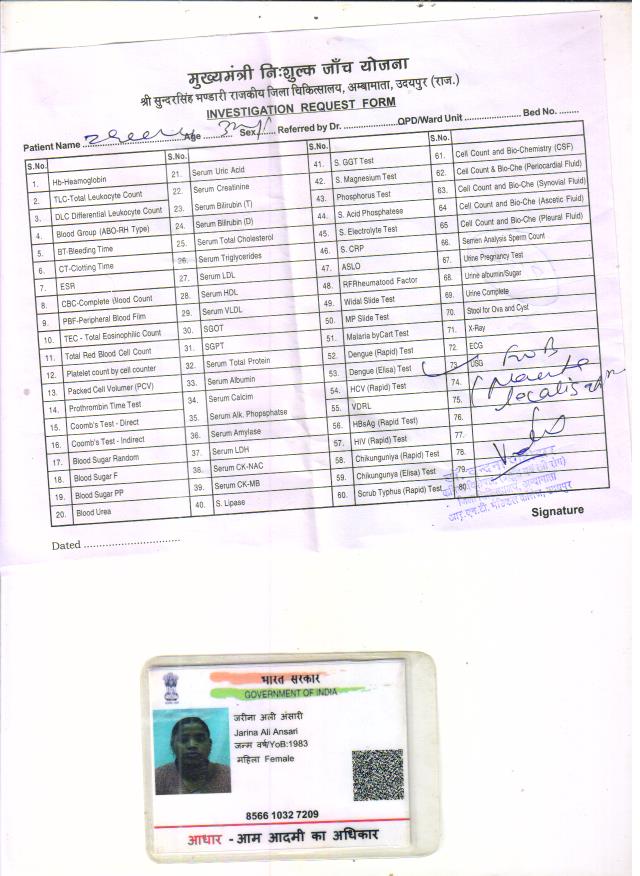 मुख्यमंत्री निःशुल्क जाँच योजना
श्री सुन्दरसिंह भण्डारी राजकीय जिला चिकित्सालय, अम्बामाता, उदयपुर (राज.)
INVESTIGATION REQUEST FORM
Patient Name .......... Age .......... Sex....... Referred by Dr. .................. OPD/Ward Unit .................. Bed No. ........
S.No. S.No. S.No. S.No.
1. Hb-Heamoglobin 21. Serum Uric Acid 41. S. GGT Test 61. Cell Count and Bio-Chemistry (CSF)
2. TLC-Total Leukocyte Count 22. Serum Creatinine 42. S. Magnesium Test 62. Cell Count & Bio-Che (Periocardial Fluid)
3. DLC Differential Leukocyte Count 23. Serum Bilirubin (T) 43. Phosphorus Test 63. Cell Count and Bio-Che (Synovial Fluid)
4. Blood Group (ABO-RH Type) 24. Serum Bilirubin (D) 44. S. Acid Phosphatese 64 Cell Count and Bio-Che (Ascetic Fluid)
5. BT-Bleeding Time 25. Serum Total Cholesterol 45. S. Electrolyte Test 65 Cell Count and Bio-Che (Pleural Fluid)
6. CT-Clotting Time 26. Serum Triglycerides 46. S. CRP 66. Semen Analysis Sperm Count
7. ESR 27. Serum LDL 47. ASLO 67. Urine Pregnancy Test
8. CBC-Complete Blood Count 28. Serum HDL 48. RFRheumatood Factor 68. Urine albumin/Sugar
9. PBF-Peripheral Blood Film 29. Serum VLDL 49. Widal Slide Test 69. Urine Complete
10. TEC - Total Eosinophilic Count 30. SGOT 50. MP Slide Test 70. Stool for Ova and Cyst
11. Total Red Blood Cell Count 31. SGPT 51. Malaria byCart Test 71. X-Ray
12. Platelet count by cell counter 32. Serum Total Protein 52. Dengue (Rapid) Test 72. ECG
13. Packed Cell Volume (PCV) 33. Serum Albumin 53. Dengue (Elisa) Test 73. USG
14. Prothrombin Time Test 34. Serum Calcim 54. HCV (Rapid) Test 74.
15. Coomb's Test - Direct 35. Serum Alk. Phopsphatse 55. VDRL 75.
16. Coomb's Test - Indirect 36. Serum Amylase 56. HBsAg (Rapid) Test 76.
17. Blood Sugar Random 37. Serum LDH 57. HIV (Rapid) Test 77.
18. Blood Sugar F 38. Serum CK-NAC 58. Chikunguniya (Rapid) Test 78.
19. Blood Sugar PP 39. Serum CK-MB 59. Chikungunya (Elisa) Test 79.
20. Blood Urea 40. S. Lipase 60. Scrub Typhus (Rapid) Test 80.
Signature
Dated ..............................
भारत सरकार
GOVERNMENT OF INDIA
जरीना अली अंसारी
Jarina Ali Ansari
जन्म वर्ष/YoB:1983
महिला Female
8566 1032 7209
आधार - आम आदमी का अधिकार